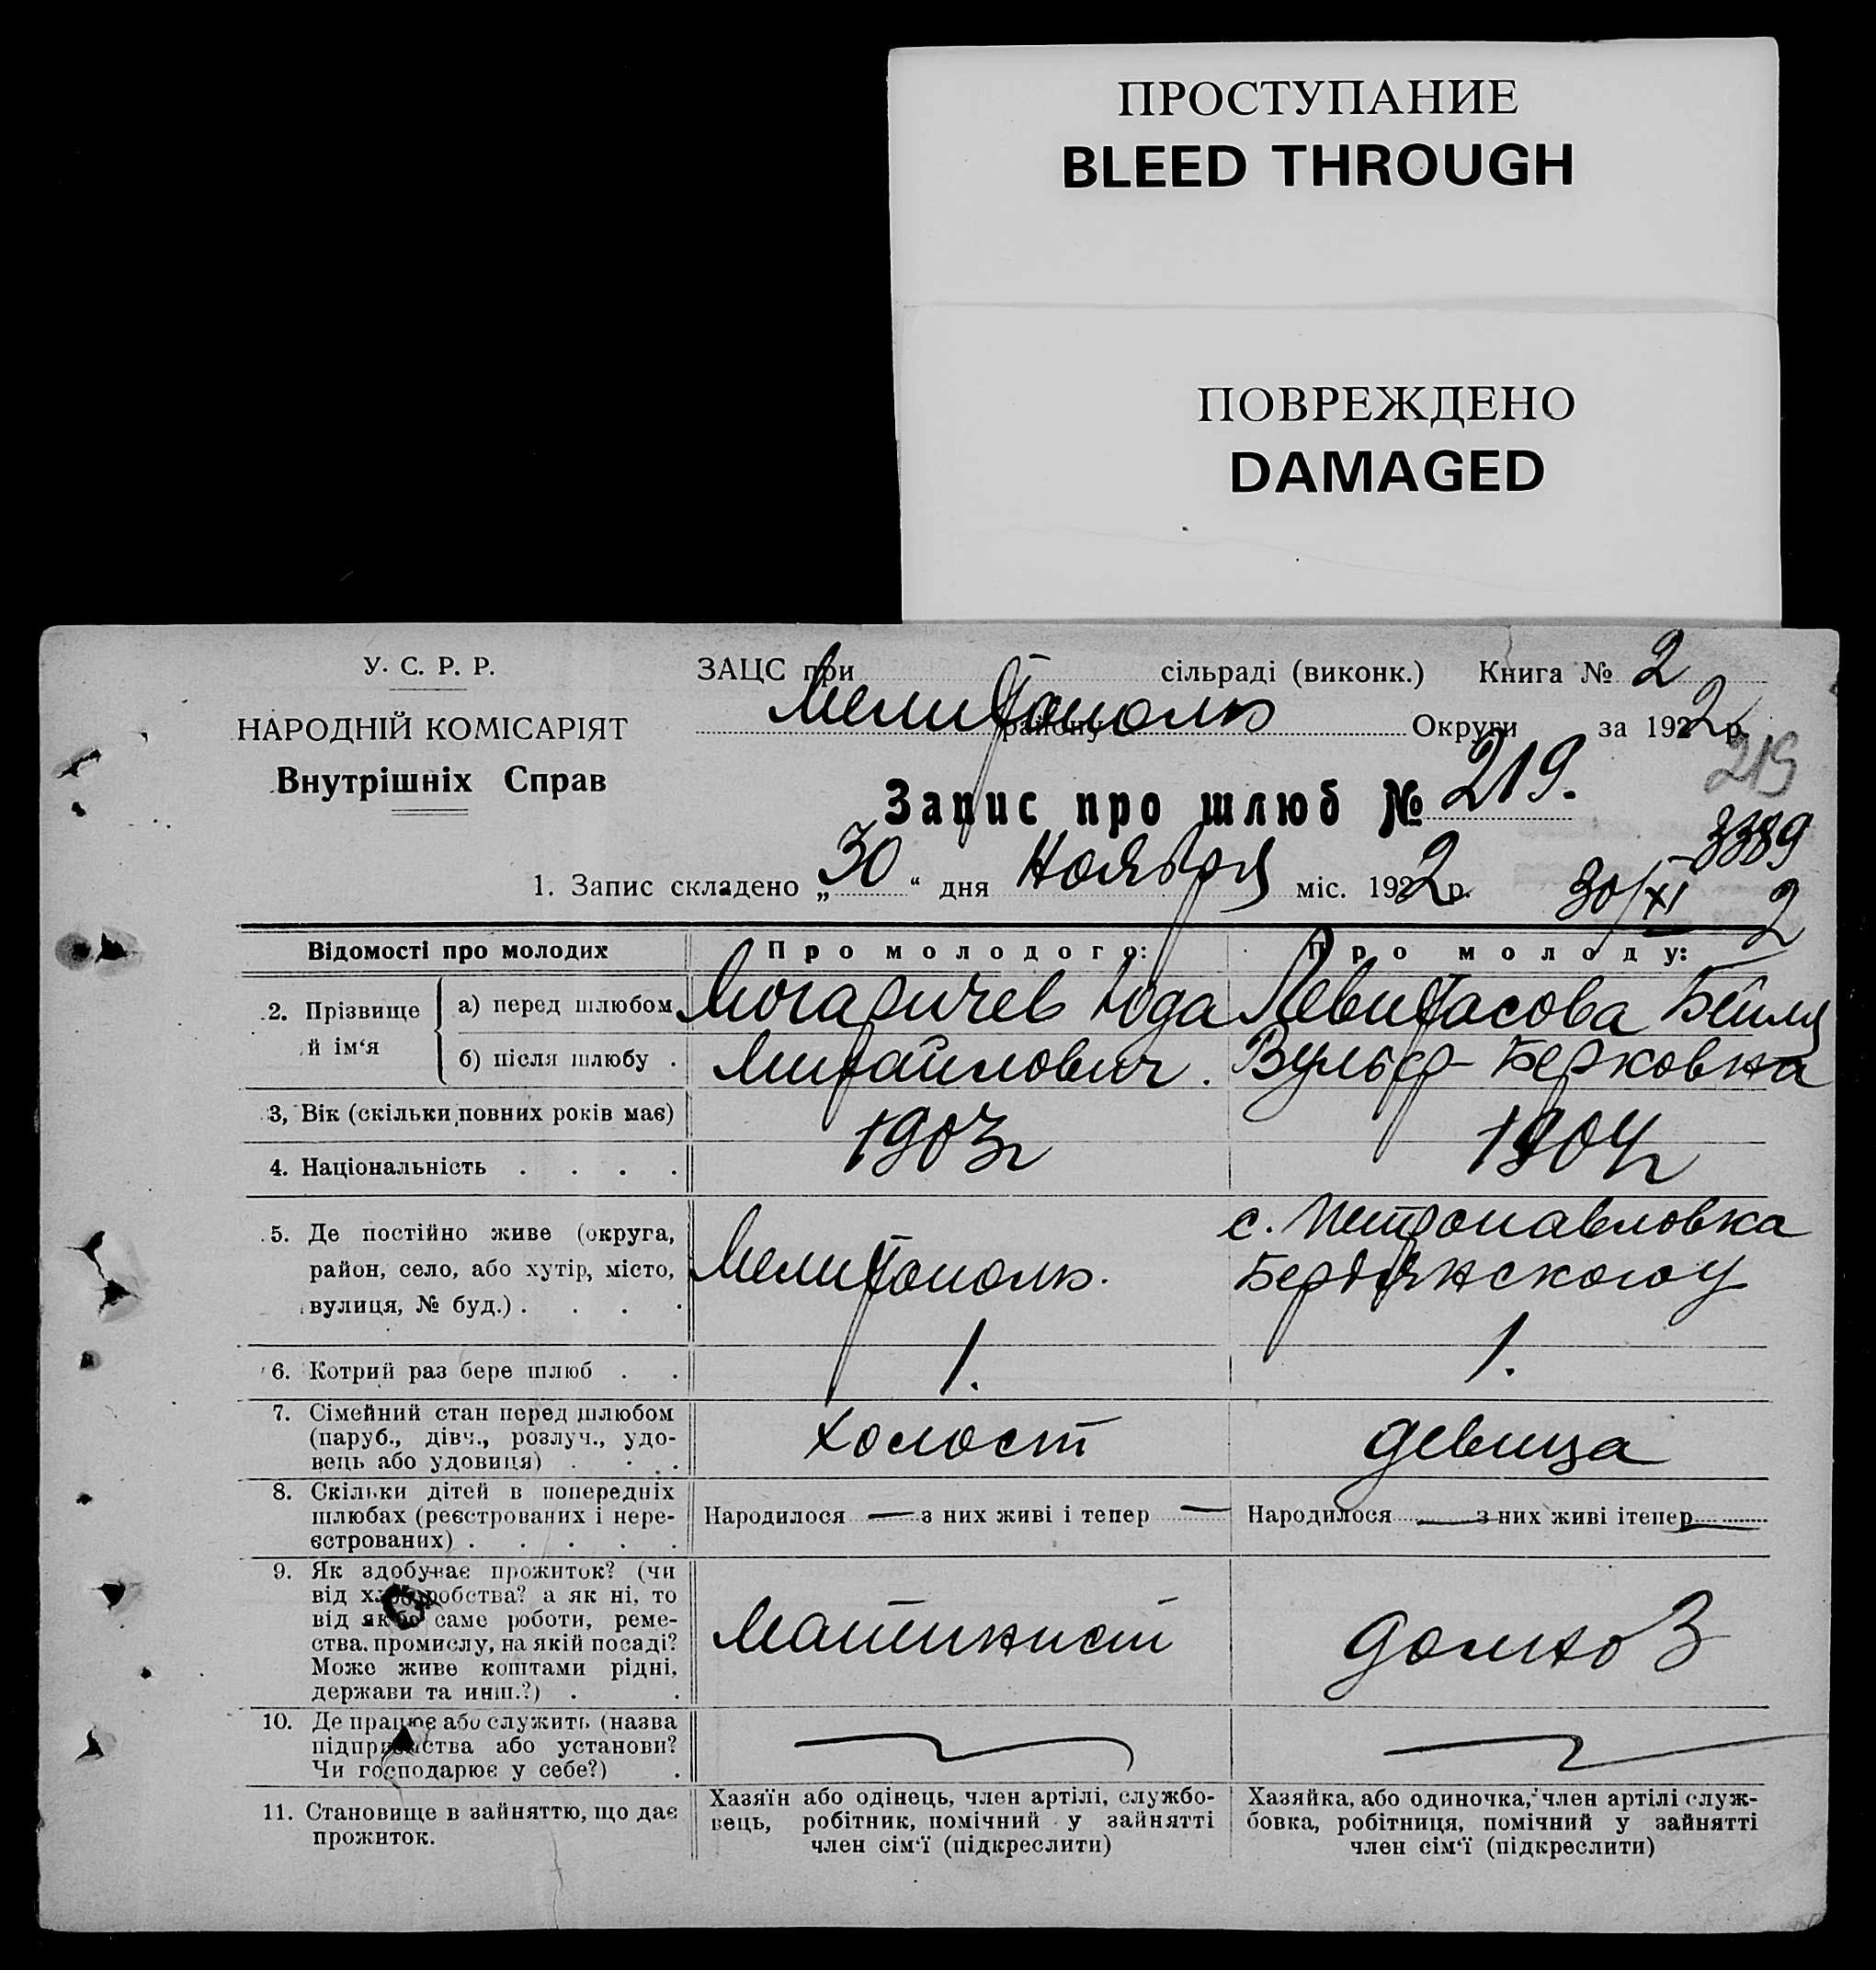 ПРОСТУПАНИЕ
BLEED THROUGH
ПОВРЕЖДЕНО
DAMAGED
У. С. Р. Р.
НАРОДНІЙ КОМІСАРІЯТ
Внутрішніх Справ
ЗАЦС при сільраді (виконк.) Книга № 2
Мелитополь району Округи за 1922 р.
Запис про шлюб № 219.
219
3389
1. Запис складено „30“ дня Ноября міс. 1922 р.
30/XI 2
Відомості про молодих
Про молодого:
Про молоду:
2. Прізвище й ім'я
а) перед шлюбом
Могаричев Юда
Левитасова Бейля
б) після шлюбу .
Михайлович.
Вульф-Берковна
3, Вік (скільки повних років має)
4. Національність . . . .
1903 г
1904 г
5. Де постійно живе (округа,
район, село, або хутір, місто,
вулиця, № буд.) . . . .
Мелитополь.
с. Петропавловка
Бердянского у
6. Котрий раз бере шлюб . .
1.
1.
7. Сімейний стан перед шлюбом
(паруб., дівч., розлуч., удо-
вець або удовиця) . . . .
холост
девица
8. Скільки дітей в попередніх
шлюбах (реєстрованих і нере-
єстрованих) . . . . .
Народилося — з них живі і тепер —
Народилося — з них живі ітепер —
9. Як здобуває прожиток? (чи
від хліборобства? а як ні, то
від якої саме роботи, реме-
ства, промислу, на якій посаді?
Може живе коштами рідні,
держави та инш.?) . .
Машинист
домхоз
10. Де працює або служить (назва
підприємства або установи?
Чи господарює у себе?) .
11. Становище в зайняттю, що дає
прожиток.
Хазяїн або одінець, член артілі, службо-
вець, робітник, помічний у зайнятті
член сім'ї (підкреслити)
Хазяйка, або одиночка, член артілі служ-
бовка, робітниця, помічний у зайнятті
член сім'ї (підкреслити)